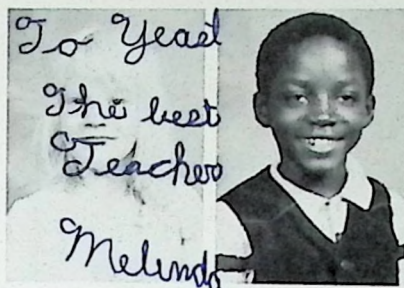 To Yeast
The best
Teacher
Melinda